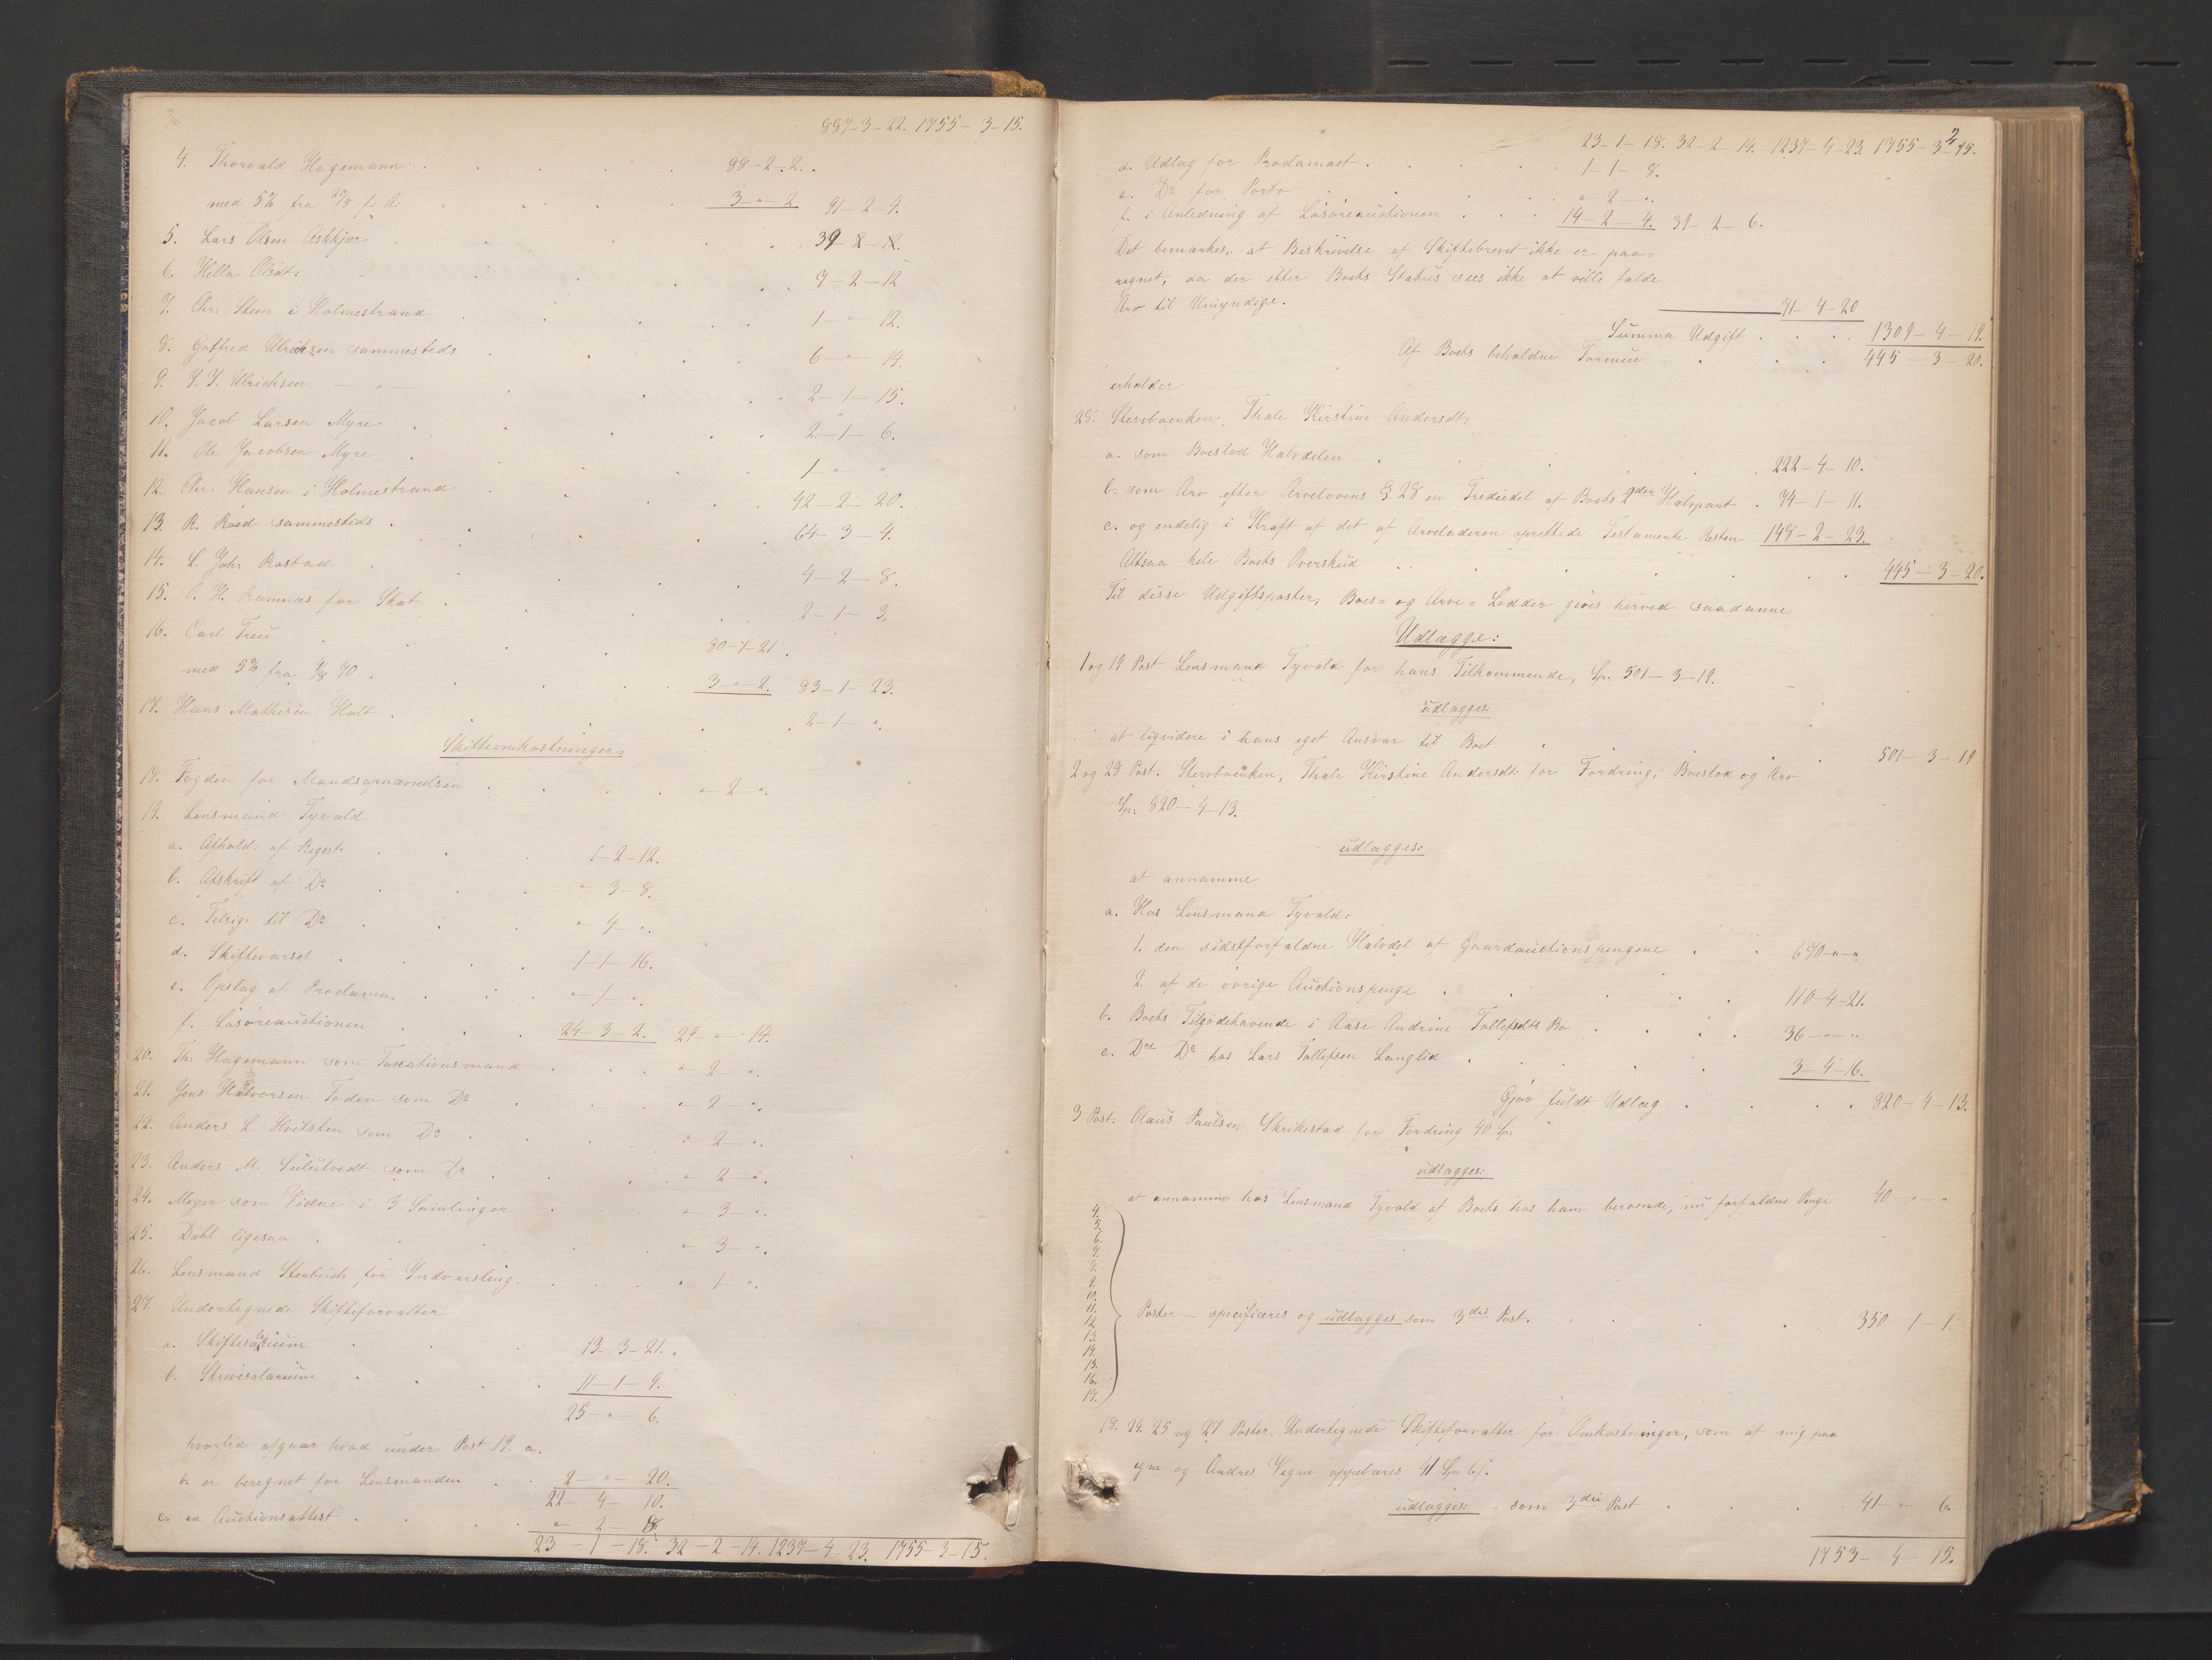 887-3-22. 1755-3-15.
4. Thorvald Hagemann 88-2-2.
med 5% fra f. A: 3-"-2 91-2-4.
5. Lars Olsen Askkjær 39
6. Hella Olsdt: 7-2-12
7. Chr. Steen i Holmestrand 1-"-12.
8. Gotfred Ulriksen sammesteds 6-"-14.
9. Ulrichsen -"- 2-1-15.
10. Jacob Larsen Myre 2-1-6.
11. Ole Jacobsen Myre 1-"-"
12. Chr. Hansen i Holmestrand 42-2-20.
13. R. Røed sammesteds 64-3-4.
14. L. Joh: Rastad 4-2-8.
15. Ramnæs for Skat 2-1-3.
16. Carl Treu 80-1-21.
med 5% fra 70. 3-"-2. 83-1-23.
17. Hans Mathisen Holt 2-1-".
Skifteomkostninger:
18. Fogden for Mandsopnævnelsen "-2-".
19. Lensmand Tyvold
a. Afhold: af Regestr 1-2-12.
b. Afskrift af Do "-3-8.
c. Tilsig: til Do "-4-".
d. Skiftevarsel 1-1-16.
e. Opslag af Proclama "-1-".
f. Løsøreauctionen 24-3-2. 29-"-14.
20. Th: Hagemann som Taxationsmand "-2-".
21. Jens Halvorsen Foden som Do "-2-".
22. Anders L Hvitsten som Do "-2-".
23. Anders M. Sulutvedt som Do "-2-".
24. Meyer som Vidne i 3 Samlinger "-3-".
25. Dahl ligesaa "-3-".
26. Lensmand for Indvarsling "-1-".
27. Undertegnede Skifteforvalter
a. Skiftesalarium 13-3-21.
b. Skrivesalarium 11-1-9.
25-"-6.
hvorfra afgaar hvad under Post 19. a.
b. er beregnet for Lensmanden 2-"-20.
22-4-10.
c. en Auctionsattest "-2-8
23-1-18. 32-2-14. 1237-4-23. 1755-3-15.
2
23-1-18. 32-2-14. 1237-4-23. 1755-3-15.
d. Udlæg for Proclamaet 1-1-8.
e. Do for Porto "-2-".
f. i Anledning af Løsøreauctionen 14-2-4. 39-2-6.
Det bemærkes, at Beskrivelse af Skiftebrevet ikke er paa=
regnet, da der efter Boets Status sees ikke at ville falde
Arv til Umyndige. 71-4-20
Summa Udgift 1309-4-19.
Af Boets beholdne Formue 445-3-20.
erholder
28. Stervboenken, Thale Kirstine Andersdt:
a. som Boeslod Halvdelen 222-4-10.
b. som Arv efter Arvelovens § 28 en Trediedel af Boets 2den Halvpart 74-1-11.
c. og endelig i Kraft af det af Arveladeren oprettede Testamente Resten 148-2-23.
Altsaa hele Boets Overskud 445-3-20.
Til disse Udgiftsposter, Boes= og Arve= Lodder gives herved saadanne
Udlægge:
1 og 19 Post Lensmand Tyvold for hans Tilkommende, Sp. 501-3-19.
udlægges:
at liqvidere i hans eget Ansvar til Boet 501-3-19
2 og 28 Post. Stervboenken, Thale Kirstine Andersdt: for Fordring, Boeslod og Arv
Sp: 820-4-13.
udlægges:
at annamme
a. Hos Lensmand Tyvold:
1. den sidstforfaldne Halvdel af Gaardauctionspengene 670-"-"
2. af de øvrige Auctionspenge 110-4-21.
b. Boets Tilgodehavende i Aase Andrine Tollefsdts Bo 36-"-"
c. Do Do hos Lars Tollefsen Langlid 3-4-16.
Gjør fuldt Udlæg 820-4-13.
3 Post. Olaus Paulsen Skrikestad for Fordring 40 Sp:
udlægges:
at annamme hos Lensmand Tyvold af Boets hos ham beroende, nu forfaldne Penge 40-"-"
4.
5.
6.
7.
8.
9.
10.
11.
12.
13.
14.
15.
16.
17.
Poster - specificeres og udlægges som 3die Post. 350-1-1.
18. 24. 25 og 27 Poster. Undertegnede Skifteforvalter for Omkostninger, som af mig paa
egne og Andres Vegne oppebæres 41 Sp 6 s.
udlægges: som 3die Post 41-"-6.
1753-4-15.